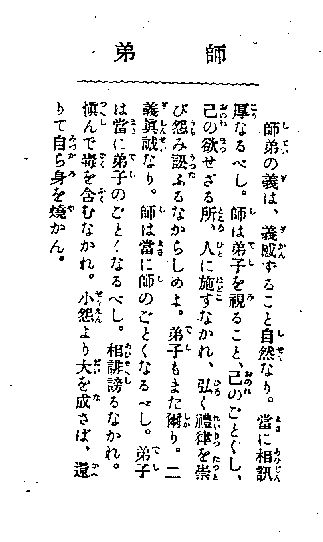 師弟
師弟の義は、義感ずること自然なり。當に相訊
厚なるべし。師は弟子を視ること、己のごとくし、
己の欲せざる所、人に施すなかれ、弘く禮律を崇
び怨み訟ふるなからしめよ。弟子もまた爾り。二
義眞誠なり。師は當に師のごとくなるべし。弟子
は當に弟子のごとくなるべし。相誹謗るなかれ。
愼んで毒を含むなかれ。小怨より大を成さば、還
りて自ら身を燒かん。